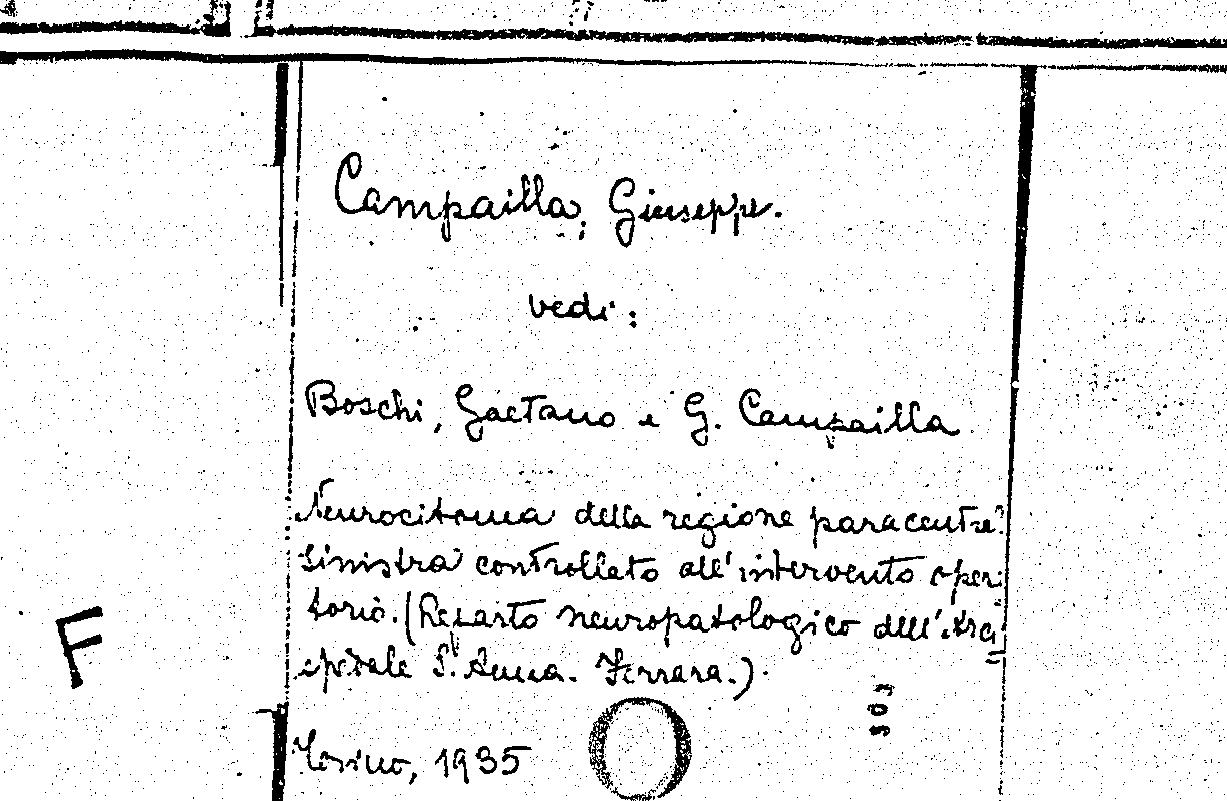 Campailla, Giuseppe.
vedi:
Boschi, Gaetano e G. Campailla
Neurocitoma della regione paracentra
sinistra controllato all'intervento oper
torio. (Reparto neuropatologico dell'Arci
spedale S. Anna. Ferrara.).
Torino, 1935
F
503